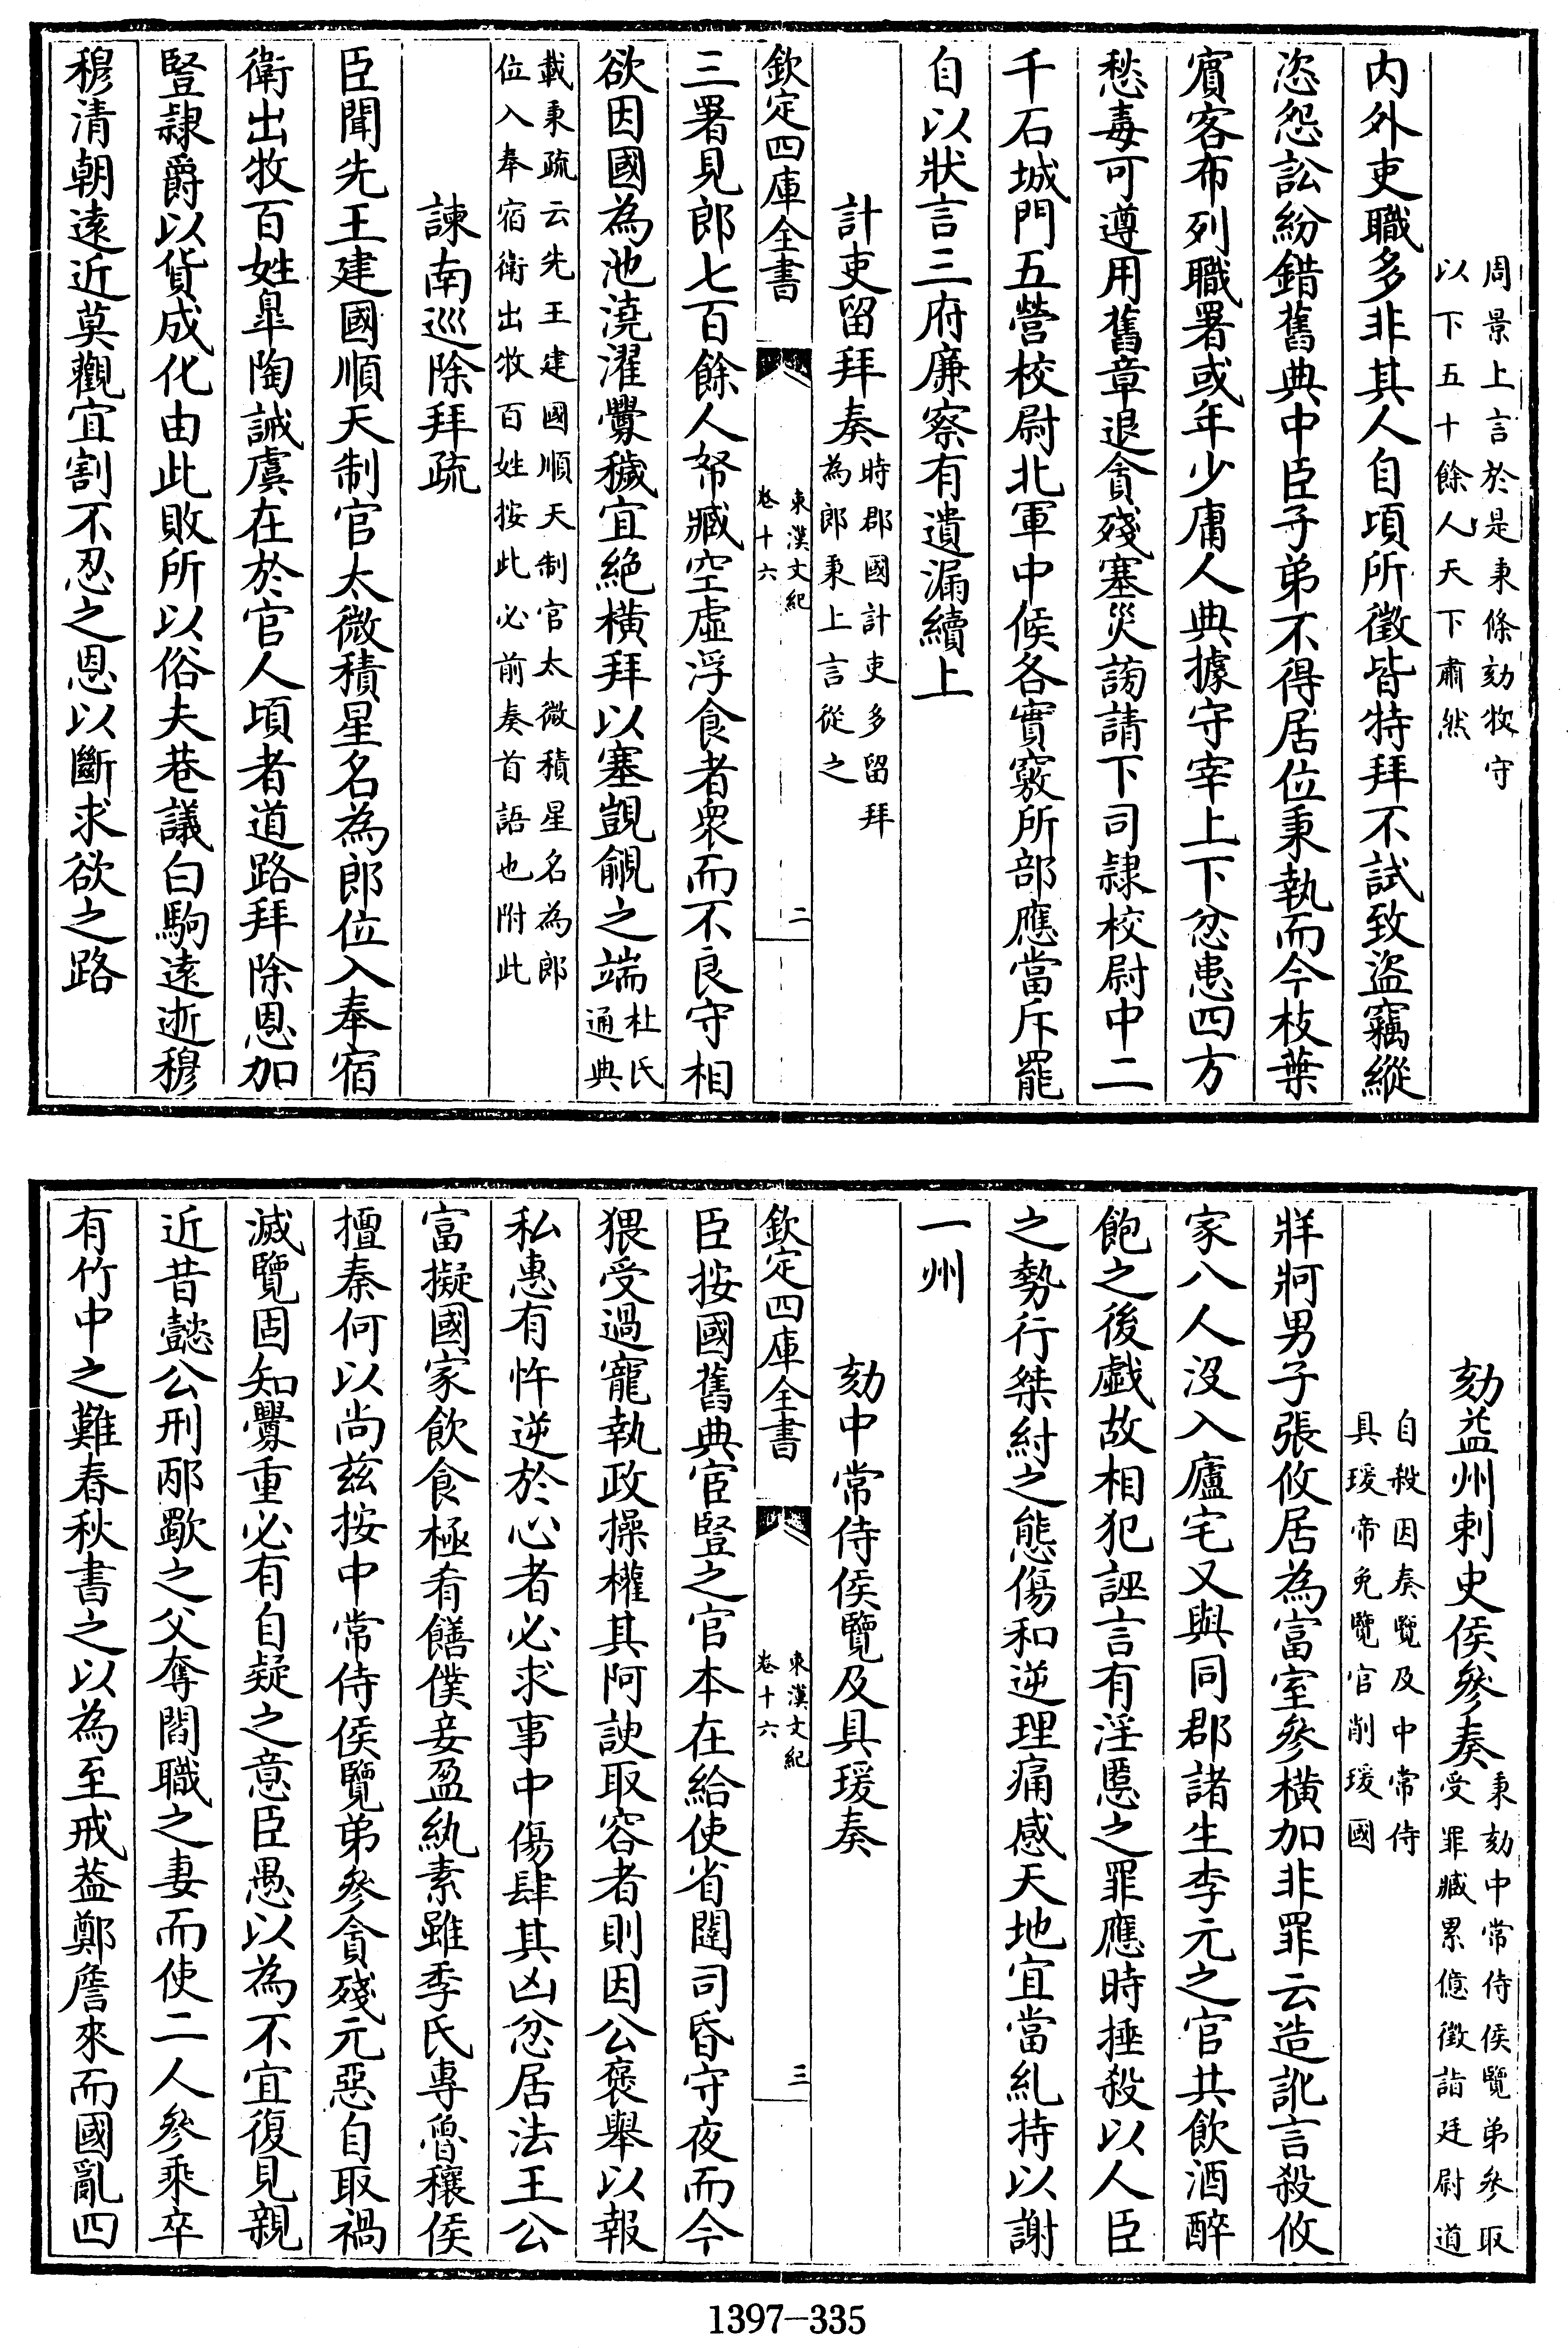 周景上言於是秉條劾牧守
以下五十餘人天下肅然
内外吏職多非其人自頃所徵皆特拜不試致盗竊縱
恣怨訟紛錯舊典中臣子弟不得居位秉執而今枝葉
賓客布列職署或年少庸人典據守宰上下忿患四方
愁毒可遵用舊章退貪殘塞災謗請下司隷校尉中二
千石城門五營校尉北軍中候各實竅所部應當斥罷
自以狀言三府廉察有遺漏續上
計吏留拜奏時郡國計吏多留拜
為郎秉上言從之
欽定四庫全書
東漢文紀
卷十六
二
三署見郎七百餘人帑臧空虚浮食者衆而不良守相
欲因國為池澆濯釁穢宜絶横拜以塞覬覦之端杜氏
通典
載秉疏云先王建國順天制官太微積星名為郎
位入奉宿衛出牧百姓按此必前奏首語也附此
諫南巡除拜疏
臣聞先王建國順天制官太微積星名為郎位入奉宿
衛出牧百姓臯陶誡虞在於官人頃者道路拜除恩加
豎隷爵以貨成化由此敗所以俗夫巷議白駒遠逝穆
穆清朝遠近莫觀宜割不忍之恩以斷求欲之路
劾益州刺史侯參奏秉劾中常侍侯覽弟參取
受罪臧累億徵詣廷尉道
自殺因奏覽及中常侍
具瑗帝免覽官削瑗國
牂牁男子張攸居為富室參横加非罪云造訛言殺攸
家八人没入廬宅又與同郡諸生李元之官共飲酒醉
飽之後戲故相犯誣言有淫慝之罪應時捶殺以人臣
之勢行桀紂之態傷和逆理痛感天地宜當糺持以謝
一州
劾中常侍侯覽及具瑗奏
欽定四庫全書
東漢文紀
卷十六
三
臣按國舊典宦豎之官本在給使省闥司昏守夜而今
猥受過寵執政操權其阿諛取容者則因公褒舉以報
私惠有忤逆於心者必求事中傷肆其凶忿居法王公
富擬國家飲食極肴饍僕妾盈紈素雖季氏專魯穰侯
擅秦何以尚兹按中常侍侯覽弟參貪殘元惡自取禍
滅覽固知釁重必有自疑之意臣愚以為不宜復見親
近昔懿公刑邴歜之父奪閻職之妻而使二人參乘卒
有竹中之難春秋書之以為至戒葢鄭詹來而國亂四
1397-335